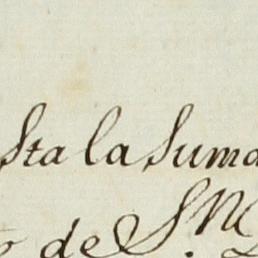 sta la suma
de S.M.